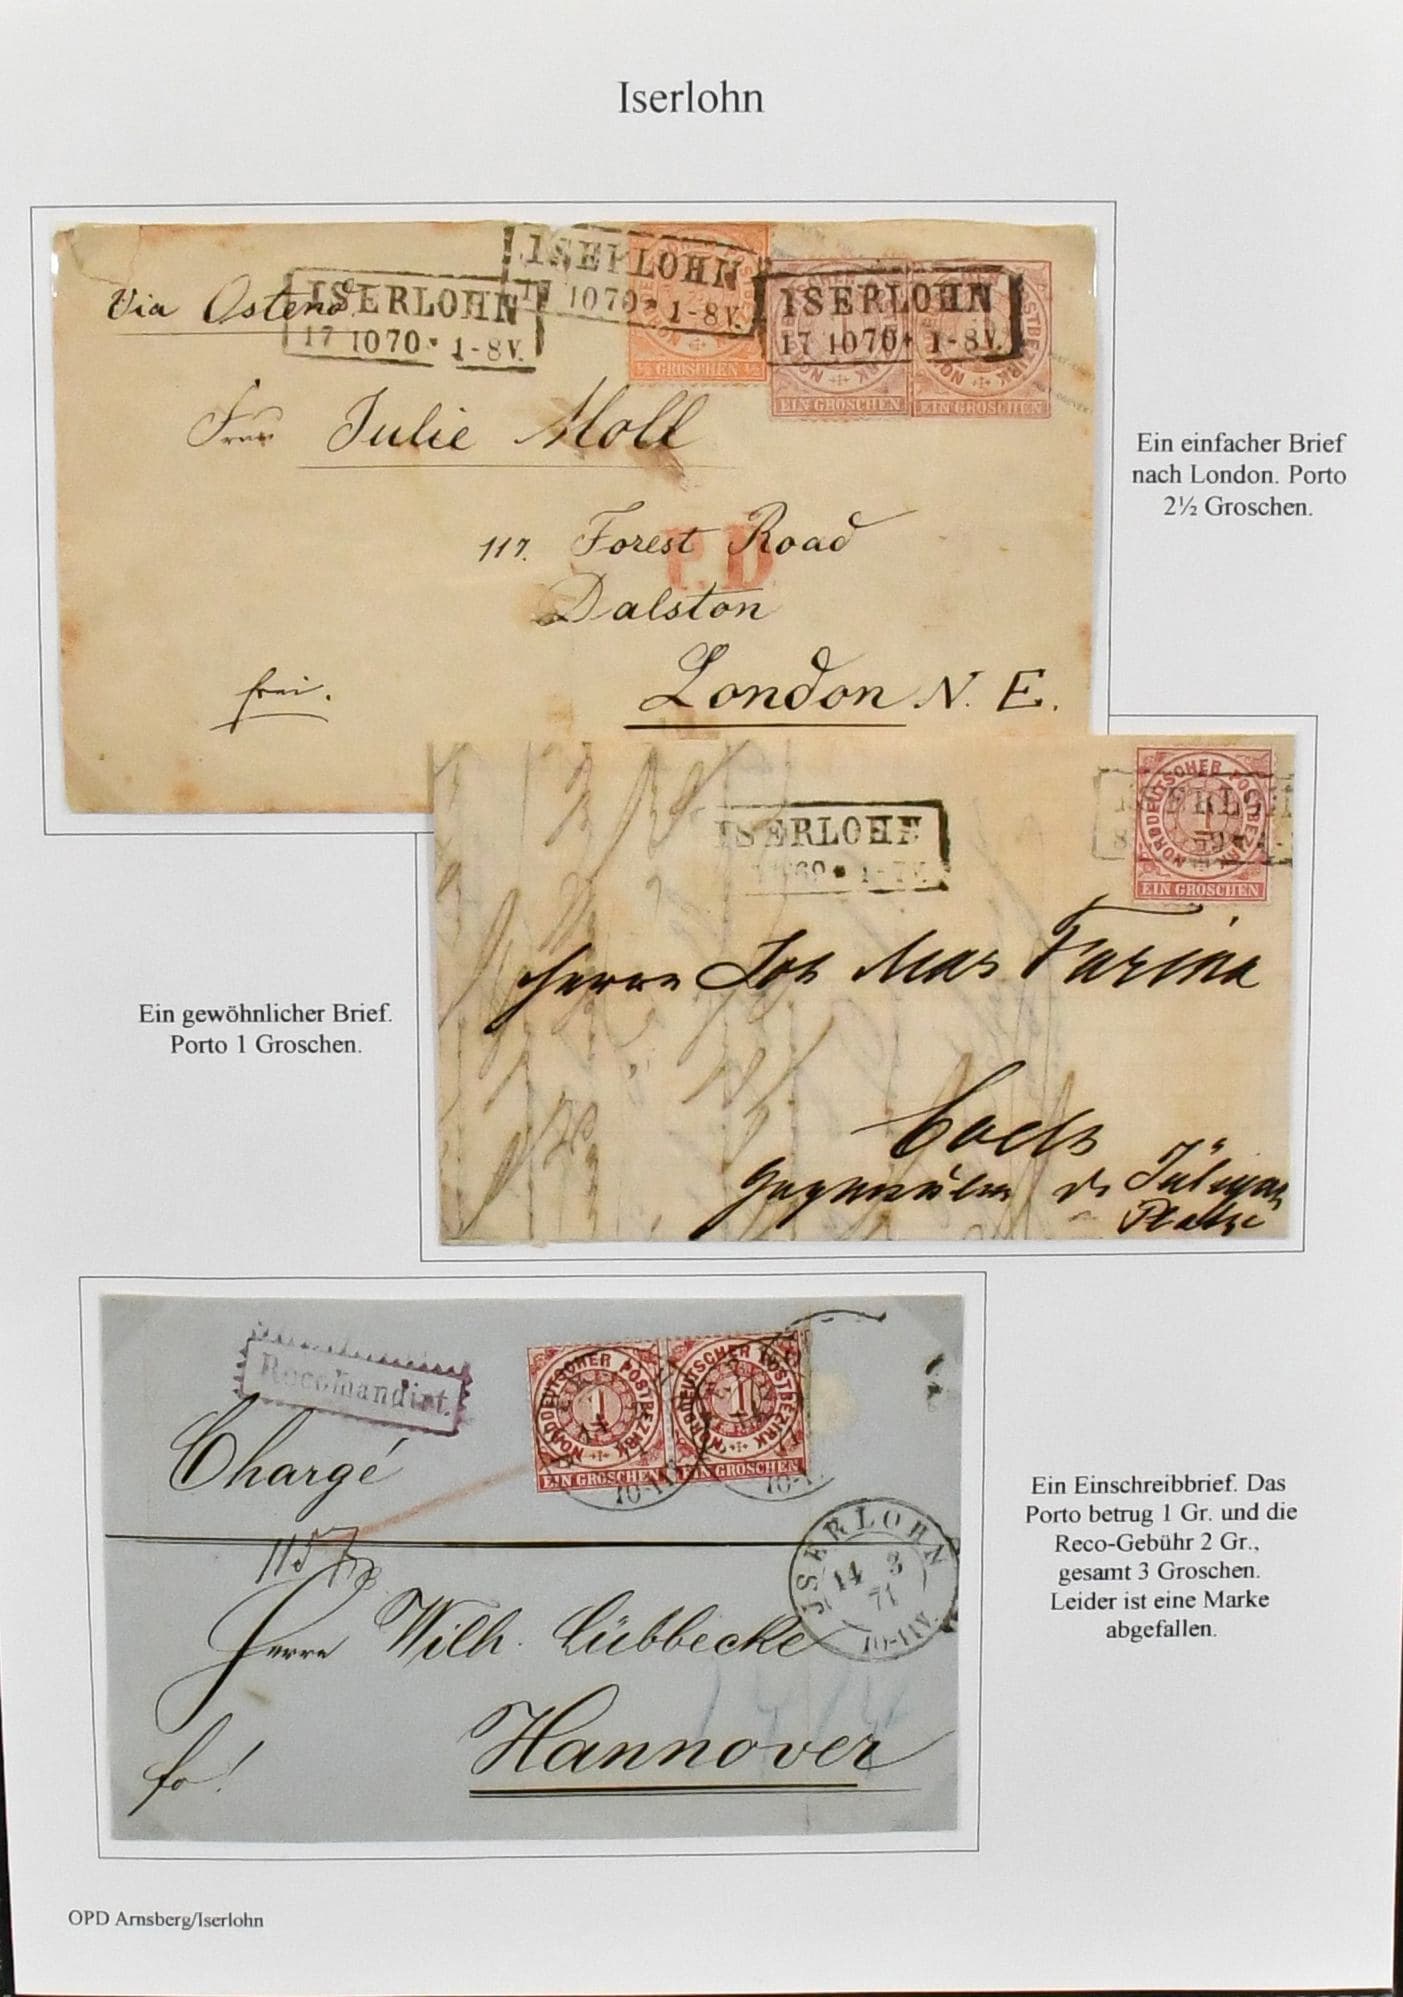 Iserlohn
Via Ostend
ISERLOHN
17 10 70 * 1-8V.
ISERLOHN
17 10 70 * 1-8V.
ISERLOHN
17 10 70 * 1-8V.
½ GROSCHEN ½
EIN GROSCHEN
EIN GROSCHEN
Frau Julie Moll
117. Forest Road
P.D.
Dalston
London N. E.
frei.
Ein einfacher Brief
nach London. Porto
2½ Groschen.
ISERLOHN
NORDDEUTSCHER POSTBEZIRK
1
EIN GROSCHEN
Herrn Joh Mar Farina
Coeln
gegenüber d. Jülichs
Platze
Ein gewöhnlicher Brief.
Porto 1 Groschen.
Recomandirt.
Chargé
NORDDEUTSCHER POSTBEZIRK
1
EIN GROSCHEN
NORDDEUTSCHER POSTBEZIRK
1
EIN GROSCHEN
ISERLOHN
14 3
71
10-11V.
Herrn Wilh. Lübbecke
Hannover
fo!
Ein Einschreibbrief. Das
Porto betrug 1 Gr. und die
Reco-Gebühr 2 Gr.,
gesamt 3 Groschen.
Leider ist eine Marke
abgefallen.
OPD Arnsberg/Iserlohn